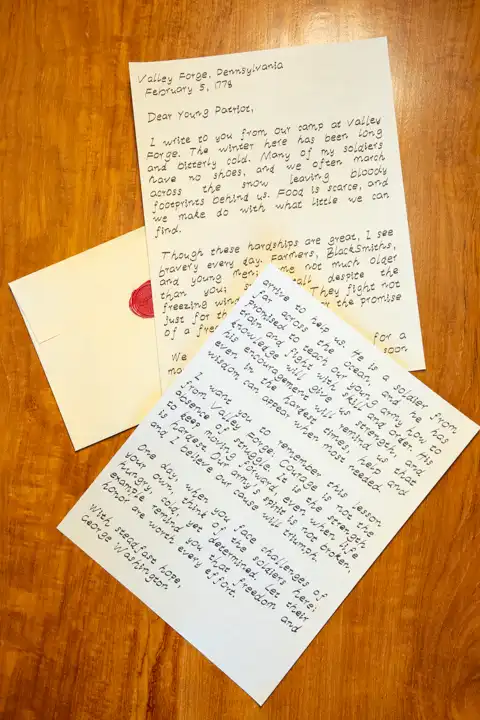 Valley Forge, Pennsylvania
February 5, 1778
Dear Young Patriot,
I write to you from our camp at Valley
Forge. The winter here has been long
and bitterly cold. Many of my soldiers
have no shoes, and we often march
across the snow leaving bloody
footprints behind us. Food is scarce, and
we make do with what little we can
find.
Though these hardships are great, I see
bravery every day. Farmers, BlackSmiths,
and young men; not much older
than you; despite the
freezing They fight not
just for the promise
of a
We for a
soon
arrive to help us. He is a soldier from
far across the ocean, and he has
promised to teach our young army how to
train and fight with skill and order. His
knowledge will give us strength, and
his encouragement will remind us that
even in the hardest times, help and
wisdom can appear when most needed.
I want you to remember this lesson
from Valley Forge: Courage is not the
absence of struggle. It is the strength
to keep moving forward, even when life
is hardest. Our army's spirit is not broken,
and I believe our cause will triumph.
One day, when you face challenges of
your own, think of the soldiers here;
hungry, cold, yet determined. Let their
example remind you that freedom and
honor are worth every effort.
With steadfast hope,
George Washington